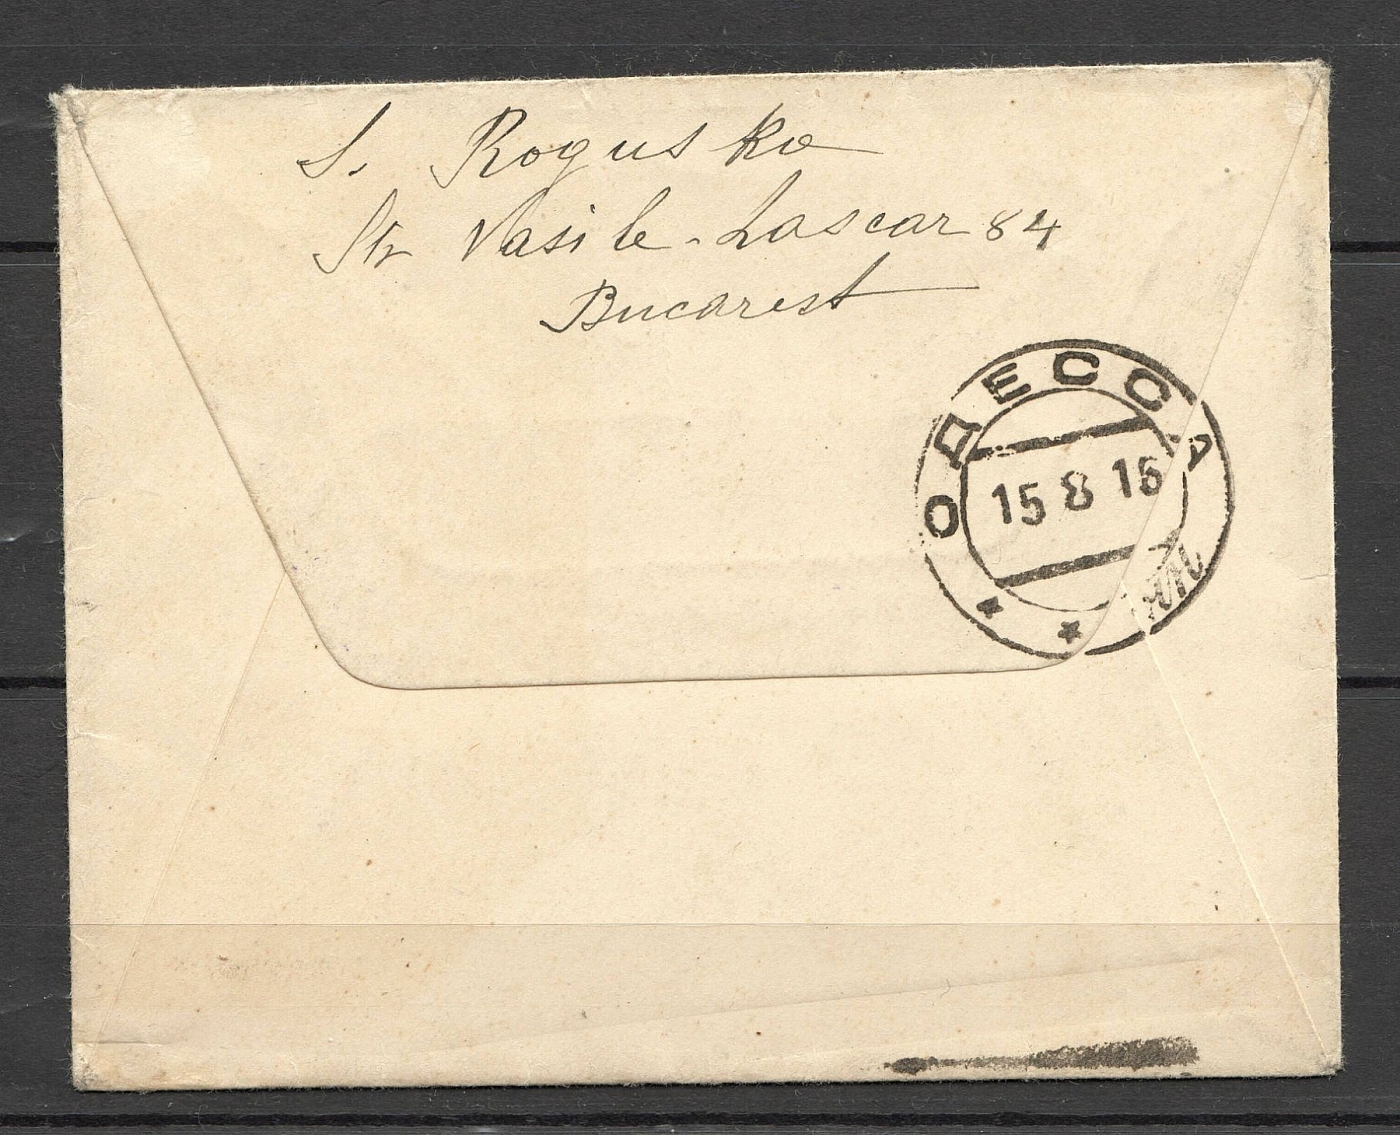 S. Roguska
Str Vasile-Lascar 84
Bucarest
ОДЕССА
15 8 16